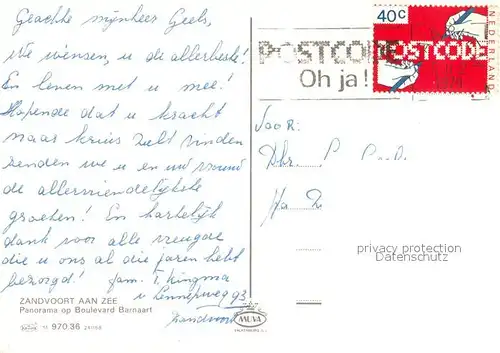 Geachte mijnheer Geels,
We wensen, u de allerbeste!
En leven met u mee!
Hopende dat u kracht
naar kruis zult vinden
zenden we u en uw vrouw
de allervriendelijkste
groeten! En hartelijk
dank voor alle vreugde
die u ons al die jaren hebt
bezorgd! fam. T. Kingma
v Lennepweg 93
Zandvoort
ZANDVOORT AAN ZEE
Panorama op Boulevard Barnaart
11 970.36
MUVA
VALKENBURG
POSTCODE
Oh ja!
40c
POSTCODE
NEDERLAND
Voor:
Dhr. P
privacy protection
Datenschutz